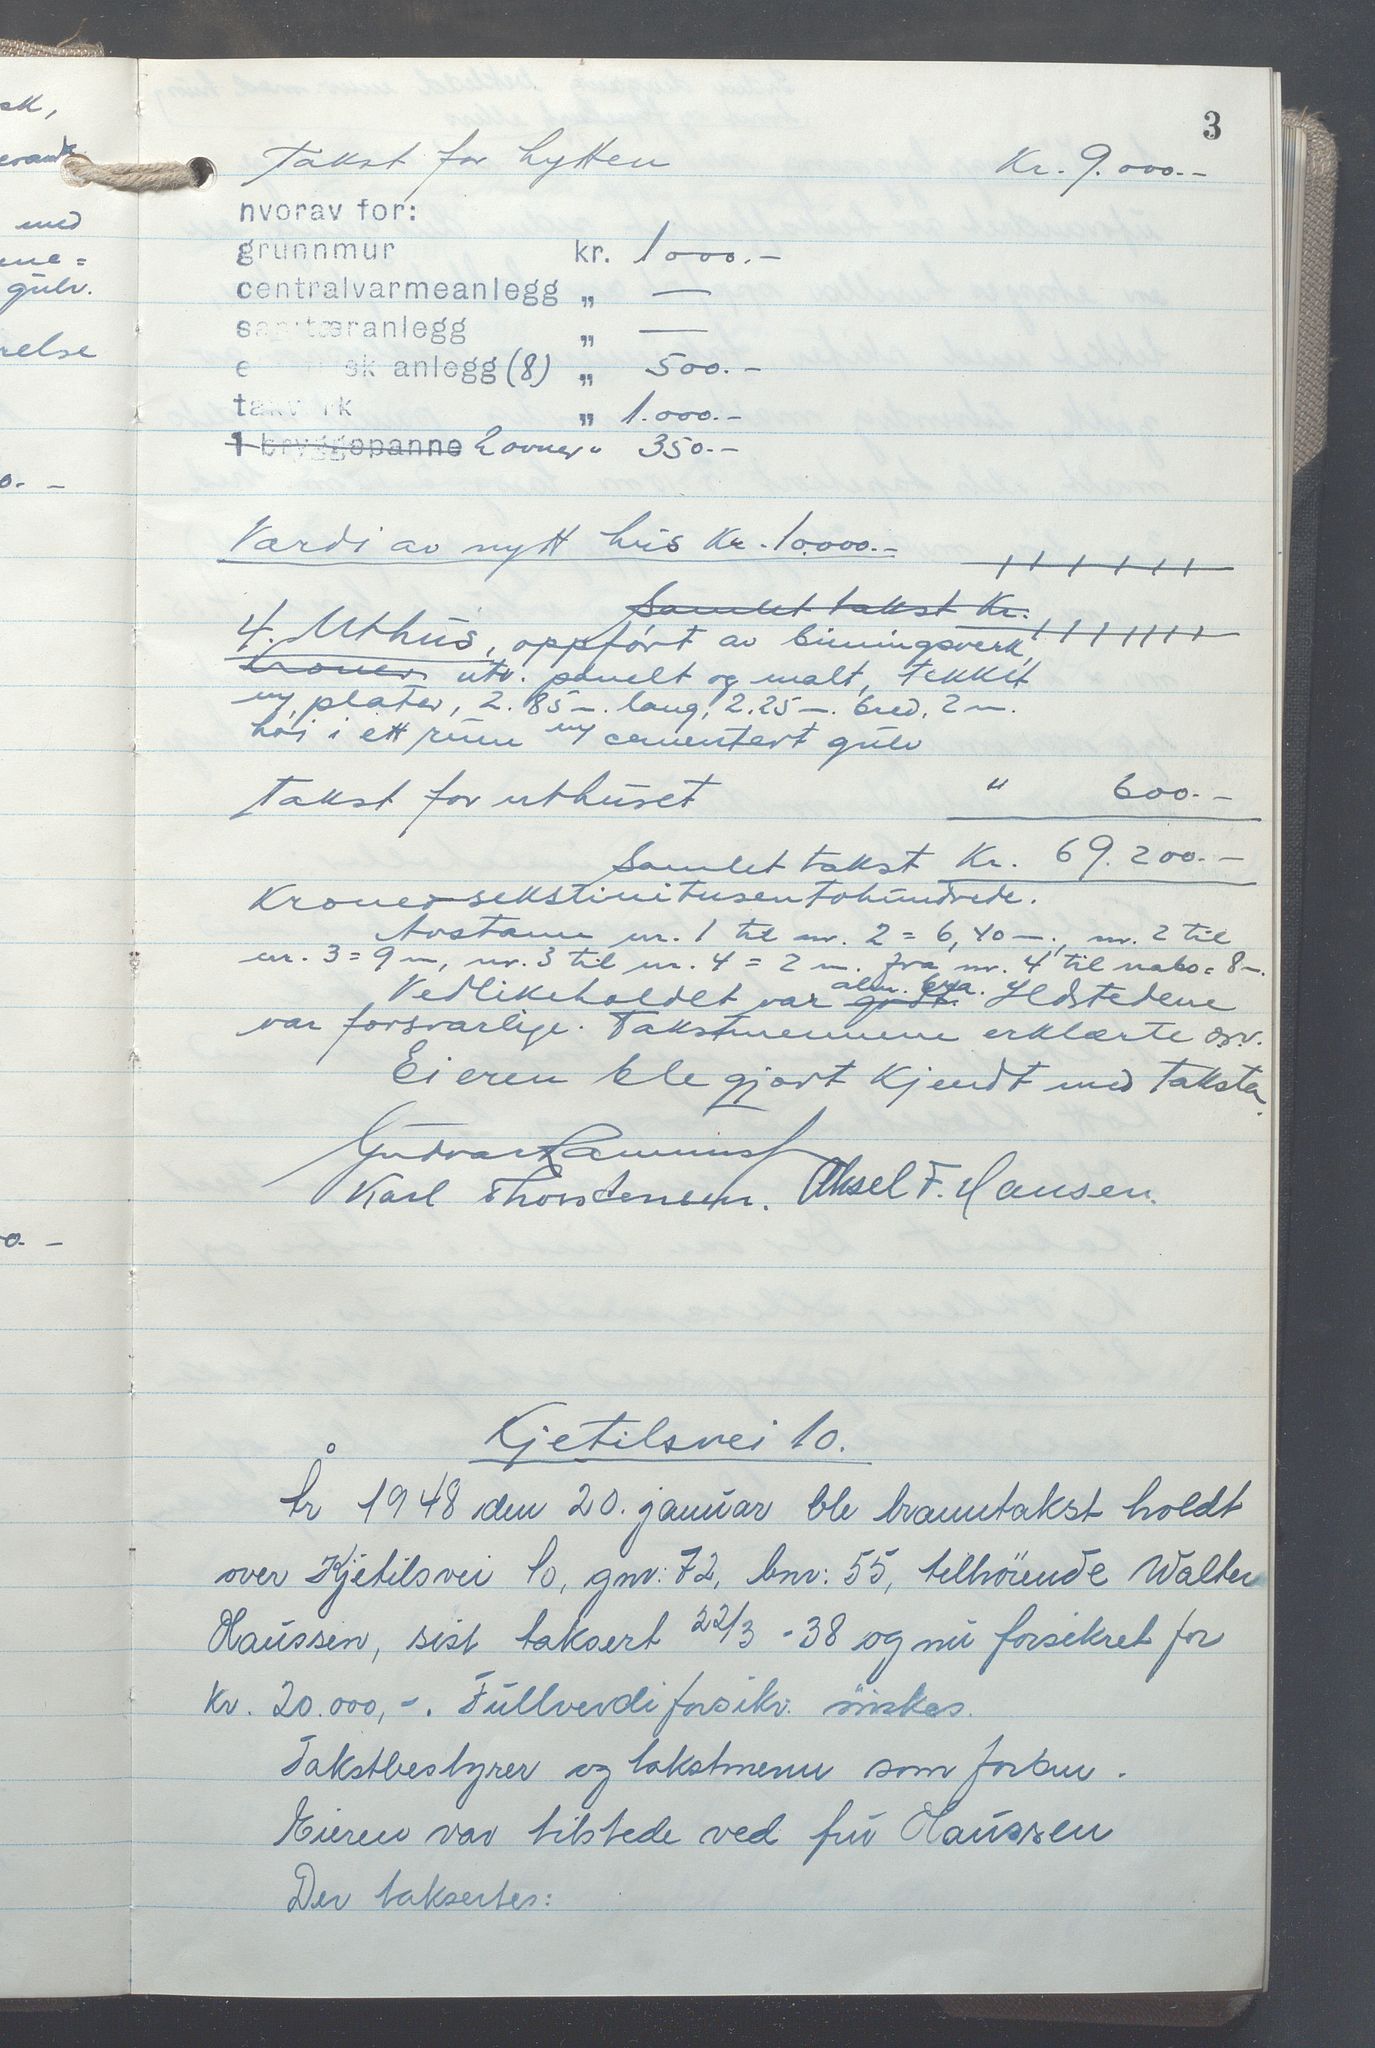 3
sk,
med
gulv.
relse
0.-
Takst for hytten Kr. 9.000.-
hvorav for:
grunnmur kr. 1000.-
centralvarmeanlegg „ —
sanitæranlegg „ —
e sk anlegg (8) „ 500.-
takverk „ 1.000.-
1 bryggepanne 2 ovner " 350.-
Værdi av nytt hus Kr. 10.000.-
Samlet takst Kr.
4. Uthus, oppført av binningsverk,
kroner utv. panelt og malt, tekket
m/ plater, 2.85 m. lang, 2.25 m. bred, 2 m.
høi i ett rum m/ cementert gulv
Takst for uthuset " 600.-
Samlet takst Kr. 69.200.-
Kroner sekstinitusentohundrede.
Avstann nr. 1 til nr. 2 = 6,40 m., nr. 2 til
nr. 3 = 9 m, nr. 3 til nr. 4 = 2 m. fra nr. 4 til nabo = 8 m.
Vedlikeholdet var godt. alm. bra. Ildstedene
var forsvarlige. Takstmennene erklærte osv.
Eieren ble gjort kjendt med taksten.
Karl Thorstensen. Aksel F. Hansen.
Kjetilsvei 10.
År 1948 den 20. januar ble branntakst holdt
over Kjetilsvei 10, gnr: 72, bnr: 55, tilhörende Walter
Haussen, sist taksert 22/3 - 38 og nu forsikret for
kr. 20.000,-. Fullverdiforsikr. önskes.
Takstbestyrer og takstmenn som foran.
Eieren var tilstede ved fru Haussen
Der taksertes: